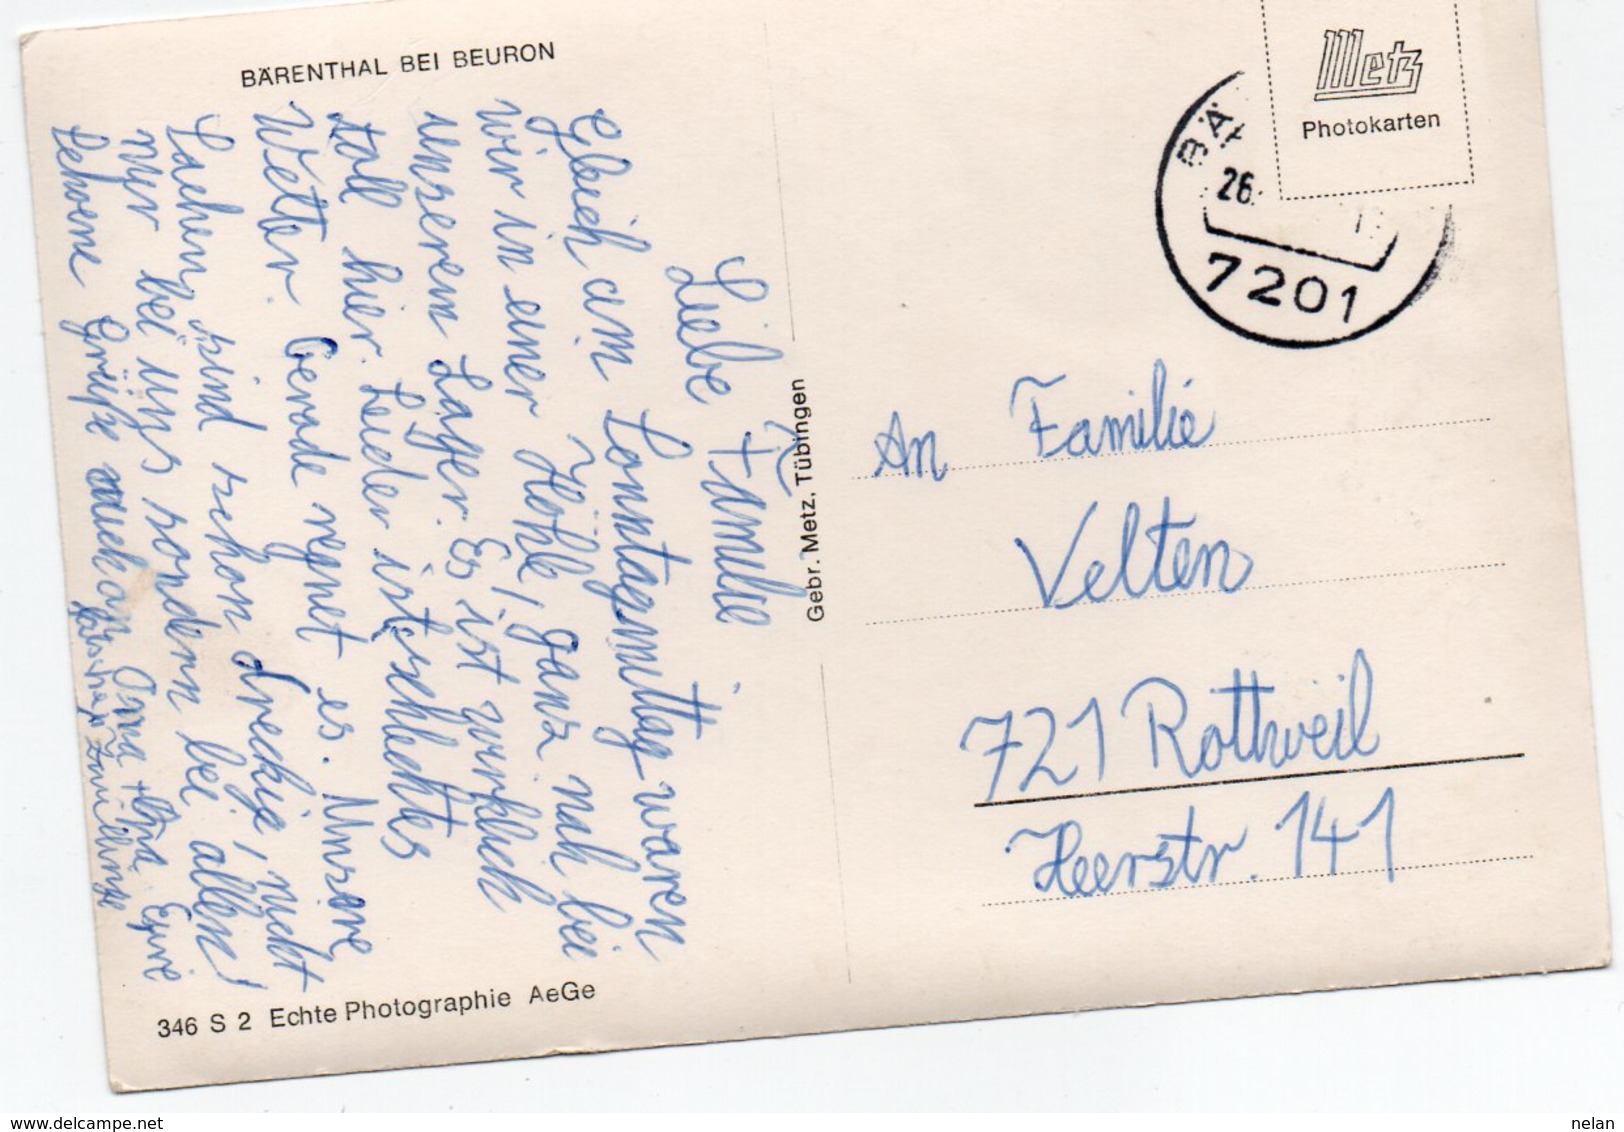 BÄRENTHAL BEI BEURON
Liebe Familie
Gleich am Sonntagmittag waren
wir in einer Höhle, ganz nah bei
unserem Lager. Es ist wirklich
toll hier. Leider ist schlechtes
Wetter. Gerade regnet es. Unsere
Sachen sind schon dreckig, nicht
nur bei uns sondern bei allen!
Schöne Grüße auch an Oma + Opa
346 S 2 Echte Photographie AeGe
Gebr. Metz, Tübingen
Metz
Photokarten
BÄ
26.
7201
An Familie
Velten
721 Rottweil
Heerstr. 141
www.delcampe.net
nelan